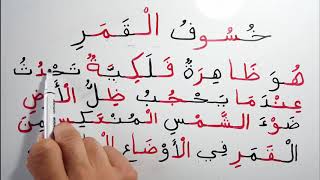 خُسُوفُ الْقَمَرِ
هُوَ ظَاهِرَةٌ فَلَكِيَّةٌ تَحْدُثُ
عِنْدَمَا يَحْجُبُ ظِلُّ الْأَرْضِ
ضَوْءَ الشَّمْسِ الْمُنْعَكِسِ مِنَ
الْقَمَرِ فِي الْأَوْضَاعِ